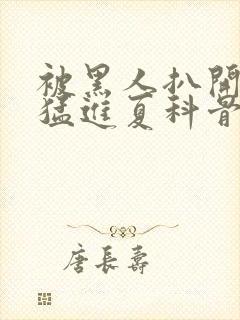 被黑人扒開
猛進夏科骨
唐長壽